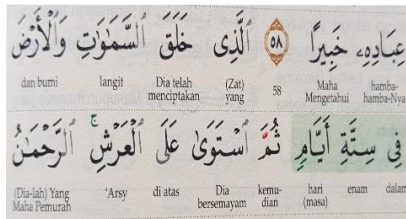 عِبَادِهِۦ خَبِيرًا ٥٨ الَّذِى خَلَقَ السَّمٰوٰتِ وَالْأَرْضَ
hamba-hamba-Nya Maha Mengetahui 58 (Zat) yang Dia telah menciptakan langit dan bumi
فِى سِتَّةِ أَيَّامٍ ثُمَّ اسْتَوٰى عَلَى الْعَرْشِ ۚ الرَّحْمٰنُ
dalam enam hari (masa) kemu-dian Dia bersemayam di atas 'Arsy (Dia-lah) Yang Maha Pemurah